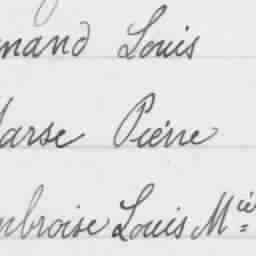 mand Louis
arse Pierre
mbroise Louis Mie